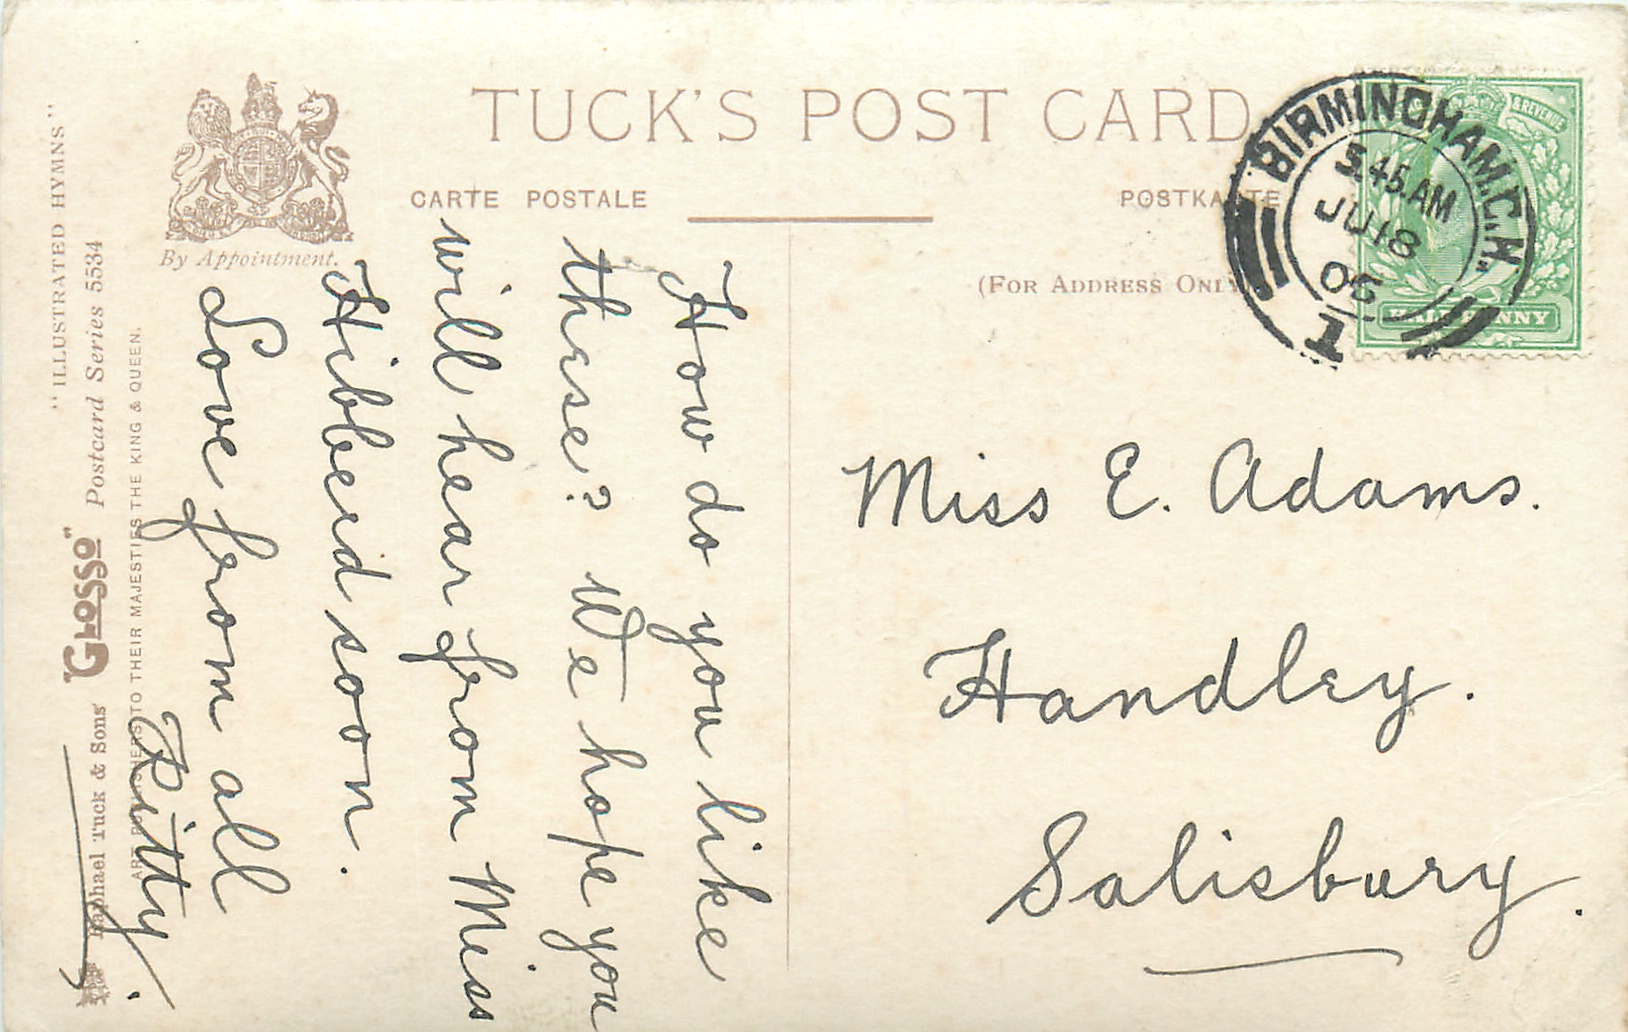 TUCK'S POST CARD
CARTE POSTALE
POSTKARTE
(FOR ADDRESS ONLY
By Appointment.
BIRMINGHAM.C.H.
5.45 AM
JU 18
05
1
& REVENUE
HALFPENNY
"ILLUSTRATED HYMNS"
Raphael Tuck & Sons' "GLOSSO" Postcard Series 5534
ART PUBLISHERS TO THEIR MAJESTIES THE KING & QUEEN.
How do you like
these? We hope you
will hear from Miss
Hibberd soon.
Love from all
Kitty.
Miss E. Adams.
Handley.
Salisbury.